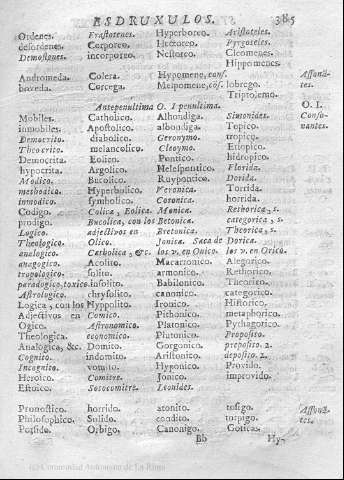 ASDRUXULOS. 385
Ordenes. Erastotenes. Hyperboreo. Aristoteles.
desordenes. Corporeo. Hectoreo. Pyrgoteles.
Demostenes. incorporeo. Nestoreo. Cleomenes.
Hippomenes.
Andromeda. Colera. Hypomene, cons. Assonãtes.
boveda. Corcega. Melpomene, cons. lobrego.
Triptolemo.
Antepenultima O. I penultima. O. I.
Mobiles. Catholico. Alhondiga. Simonides. Consonantes.
inmobiles. Apostolico. albondiga. Topico.
Democrito. diabolico. Geronymo. tropico.
Theocrito. melancolico. Cleoymo. Etiopico.
Democrita. Eolico. Pontico. hidropico.
hypocrita. Argolico. Helespontico. Florida.
Modico. Bucolico. Ruypontico. Dorida.
methodico. Hyperbolico. Veronica. Torrida.
inmodico. symbolico. Coronica. horrida.
Codigo. Colica, Eolica. Monica. Rethorica, s.
prodigo. Bucolica, con los Betonica. categorica, s.
Logico. adjectivos en Bretonica. Theorica, s.
Theologico. Olico. Jonica. Saca de Dorica.
analogico. Catholica, &c. los v. en Onico. los v. en Orico.
anagogico. Acolito. Macarronico. Alegorico.
tropologico. solito. armonico. Rethorico.
paradogico. toxico. insolito. Babilonico. Theorico.
Astrologico. chrysolito. canonico. categorico.
Logica, con los Hyppolito. Ironico. Historico.
Adjectivos en Comico. Pithonico. metaphorico.
Ogico. Astronomico. Platonico. Pythagorico.
Theologica. economico. Plutonico. Proposito.
Analogica, &c. Domito. Gorgonico. preposito. 2.
Cognito. indomito. Aristonico. deposito. 2.
Incognito. vomito. Hygonico. Provido.
Heroico. Comitre. Jonico. improvido.
Estoico. Sotocomitre. Leonides.
Pronostico. horrido. atonito. tosigo. Assonãtes.
Philosophico. Solido. condito. torpigo.
Porfido. Orbigo. Canonigo. Goticas.
Bb Hy-
(C) Comunidad Autónoma de La Rioja